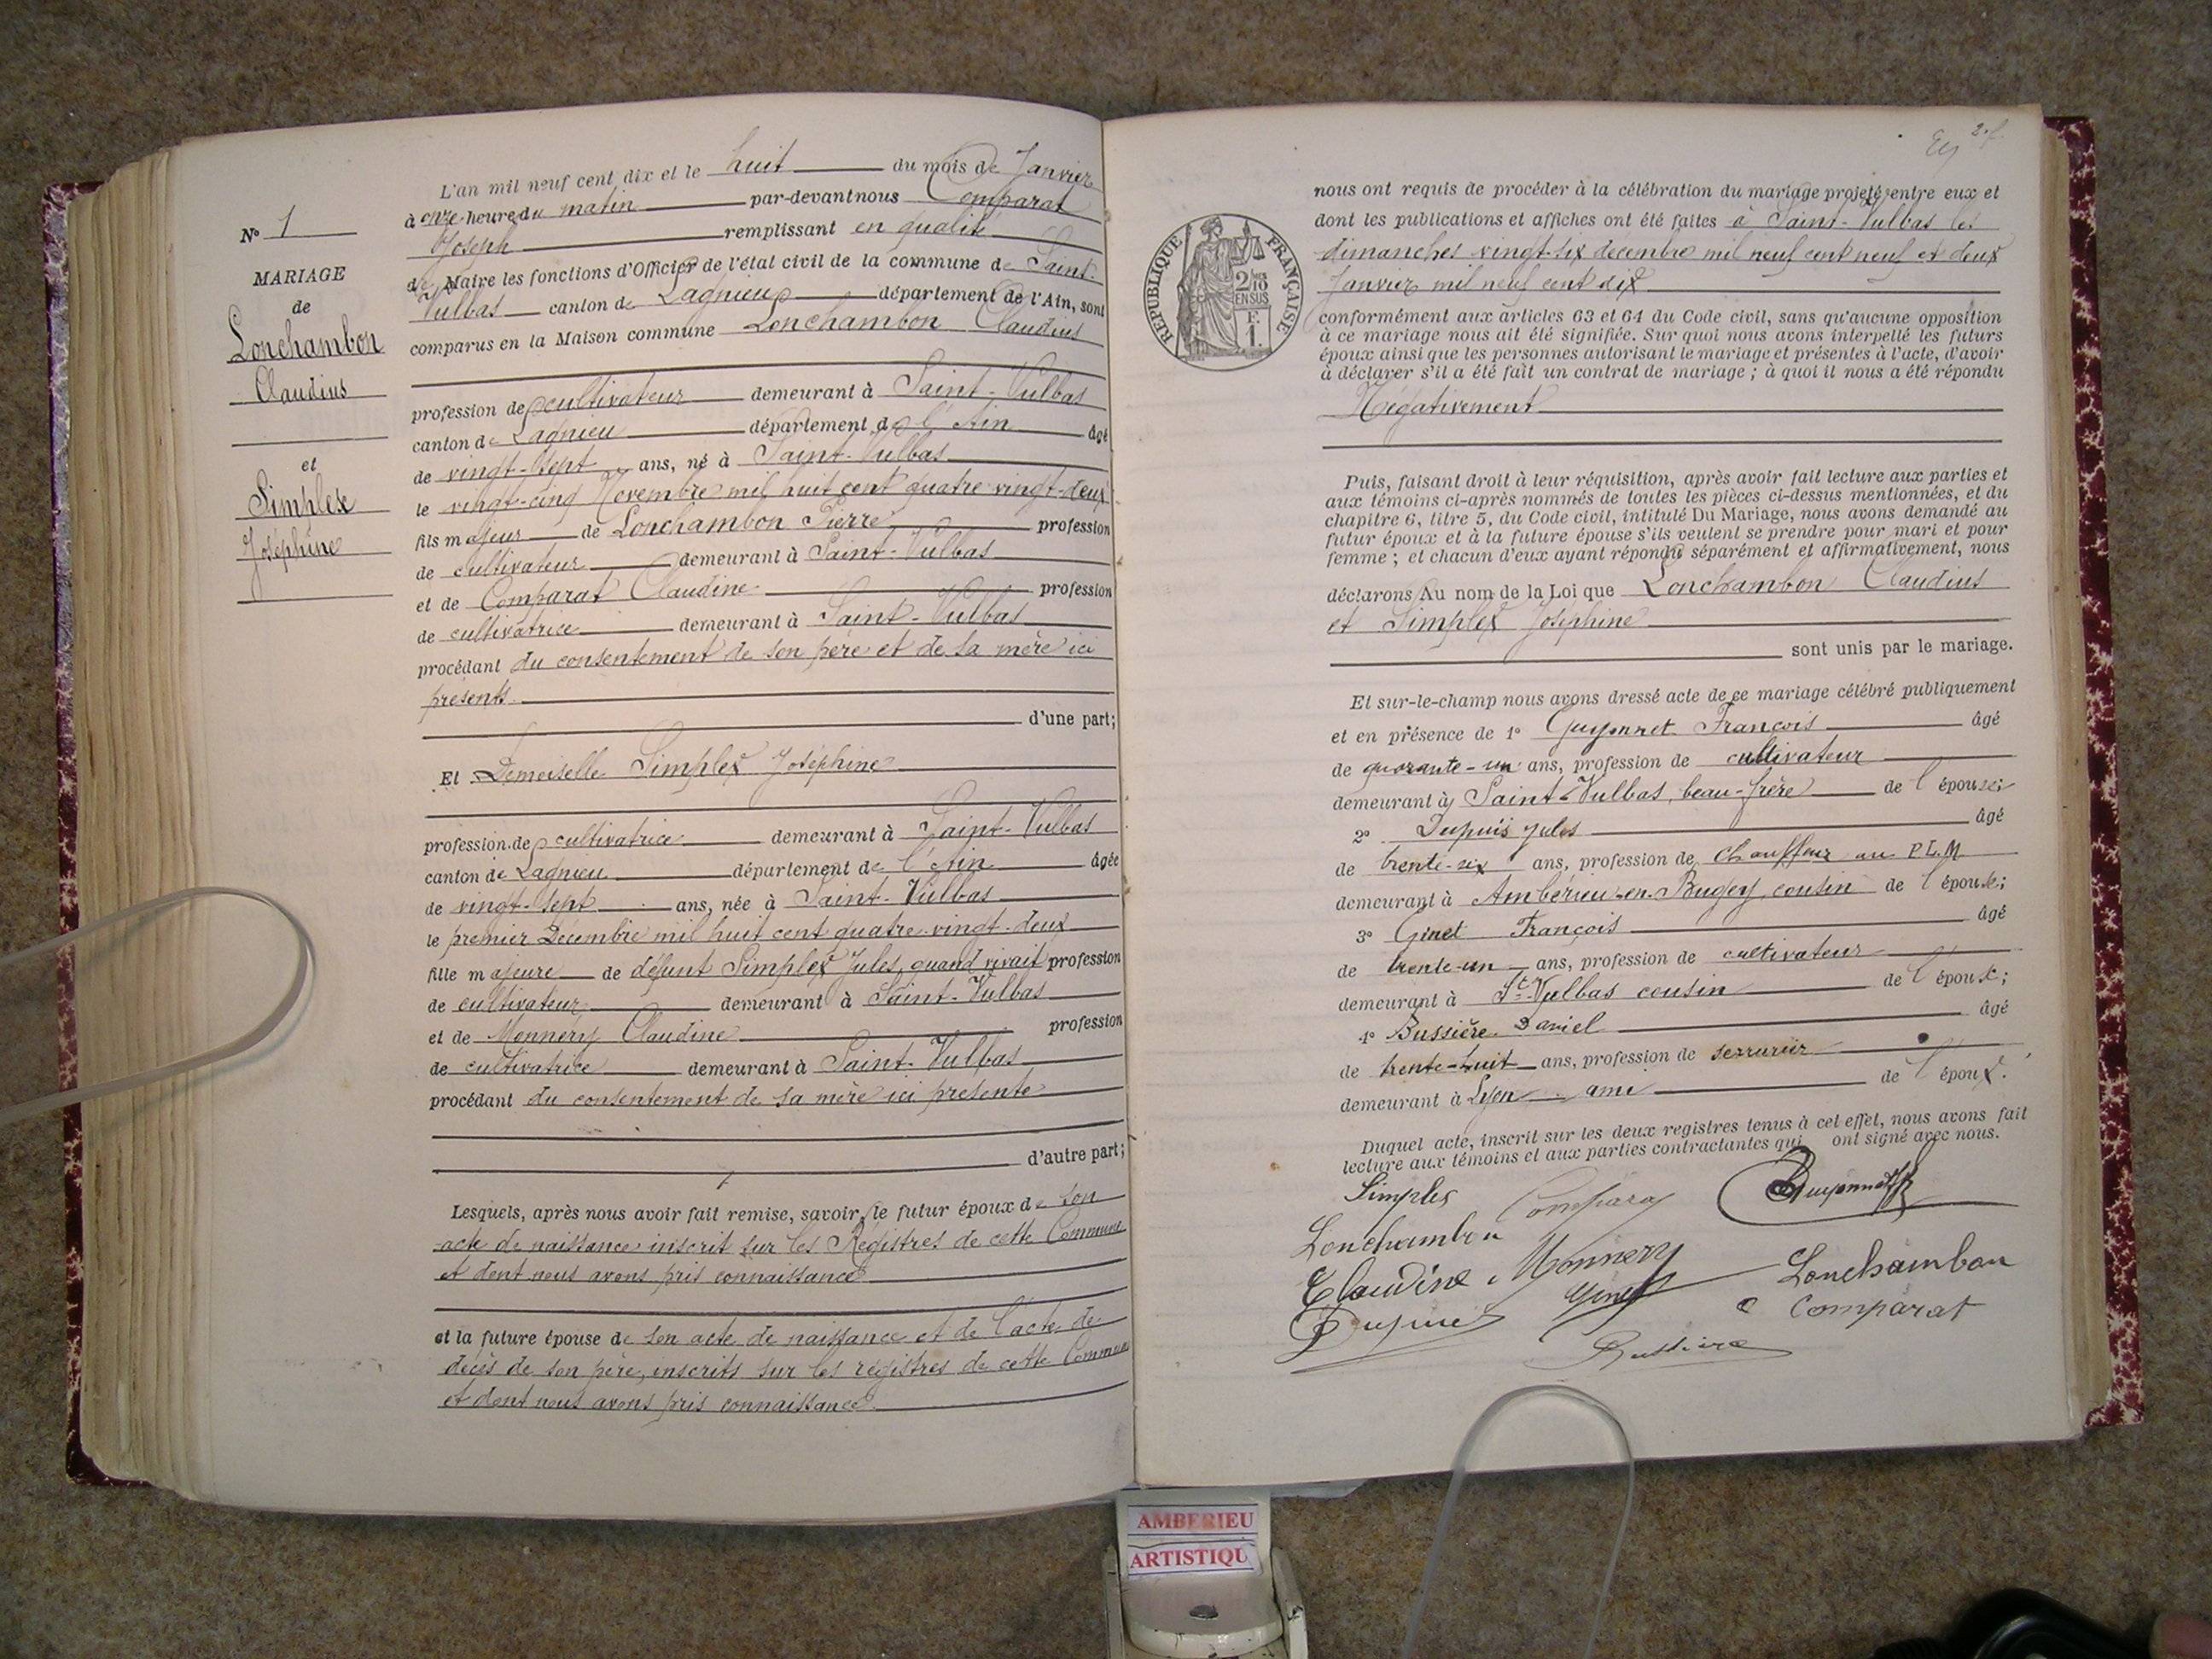 N° 1
MARIAGE
de
Lonchambon
Claudius
et
Simplex
Joséphine
L'an mil neuf cent dix et le huit du mois de Janvier
à onze heure du matin par-devant nous Comparat
Joseph remplissant en qualité
de Maire les fonctions d'Officier de l'état civil de la commune de Saint-
Vulbas canton de Lagnieu département de l'Ain, sont
comparus en la Maison commune Lonchambon Claudius
profession de cultivateur demeurant à Saint-Vulbas
canton de Lagnieu département de l'Ain âgé
de vingt-sept ans, né à Saint-Vulbas
le vingt-cinq Novembre mil huit cent quatre vingt-deux
fils majeur de Lonchambon Pierre profession
de cultivateur demeurant à Saint-Vulbas
et de Comparat Claudine profession
de cultivatrice demeurant à Saint-Vulbas
procédant du consentement de son père et de sa mère ici
présents
d'une part;
Et Demoiselle Simplex Joséphine
profession de cultivatrice demeurant à Saint-Vulbas
canton de Lagnieu département de l'Ain âgée
de vingt-sept ans, née à Saint-Vulbas
le premier Decembre mil huit cent quatre-vingt-deux
fille majeure de défunt Simplex Jules, quand vivait profession
de cultivateur demeurant à Saint-Vulbas
et de Monnery Claudine profession
de cultivatrice demeurant à Saint-Vulbas
procédant du consentement de sa mère ici présente
d'autre part;
Lesquels, après nous avoir fait remise, savoir, le futur époux de son
acte de naissance inscrit sur les Registres de cette Commune
et dont nous avons pris connaissance
et la future épouse de son acte de naissance et de l'acte de
décès de son père, inscrits sur les régistres de cette Commune
et dont nous avons pris connaissance
2.f.
RÉPUBLIQUE FRANÇAISE
2/10
EN SUS
F.
1.
nous ont requis de procéder à la célébration du mariage projeté entre eux et
dont les publications et affiches ont été faites à Saint-Vulbas les
dimanches vingt-six decembre mil neuf cent neuf et deux
Janvier mil neuf cent dix
conformément aux articles 63 et 64 du Code civil, sans qu'aucune opposition
à ce mariage nous ait été signifiée. Sur quoi nous avons interpellé les futurs
époux ainsi que les personnes autorisant le mariage et présentes à l'acte, d'avoir
à déclarer s'il a été fait un contrat de mariage ; à quoi il nous a été répondu
Négativement
Puis, faisant droit à leur réquisition, après avoir fait lecture aux parties et
aux témoins ci-après nommés de toutes les pièces ci-dessus mentionnées, et du
chapitre 6, titre 5, du Code civil, intitulé Du Mariage, nous avons demandé au
futur époux et à la future épouse s'ils veulent se prendre pour mari et pour
femme ; et chacun d'eux ayant répondu séparément et affirmativement, nous
déclarons Au nom de la Loi que Lonchambon Claudius
et Simplex Joséphine
sont unis par le mariage.
Et sur-le-champ nous avons dressé acte de ce mariage célébré publiquement
et en présence de 1° Guyonnet François âgé
de quarante-un ans, profession de cultivateur
demeurant à Saint-Vulbas, beau-frère de l'épouse;
2° Dupuis Jules âgé
de trente-six ans, profession de chauffeur au P.L.M
demeurant à Ambérieu-en-Bugey, cousin de l'épouse;
3° Ginet François âgé
de trente-un ans, profession de cultivateur
demeurant à St-Vulbas cousin de l'épouse;
4° Bussière Daniel âgé
de trente-huit ans, profession de serrurier
demeurant à Lyon ami de l'époux.
Duquel acte, inscrit sur les deux registres tenus à cet effet, nous avons fait
lecture aux témoins et aux parties contractantes qui ont signé avec nous.
Simplex Comparat Guyonnet
Lonchambon
Claudine Monnery Ginet Lonchambon
Dupuis C Comparat
Bussière
AMBERIEU
ARTISTIQU